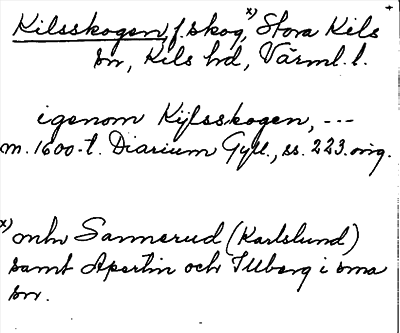 Kilsskogen, f. skog, x) Stora Kils
sn, Kils hd, Värml. l.
igenom Kijlsskogen, ---
m. 1600-t. Diarium Gyll., ss. 223. orig.
x) mln Sannerud (Karlslund)
samt Apertin och Illberg i sma
sn.